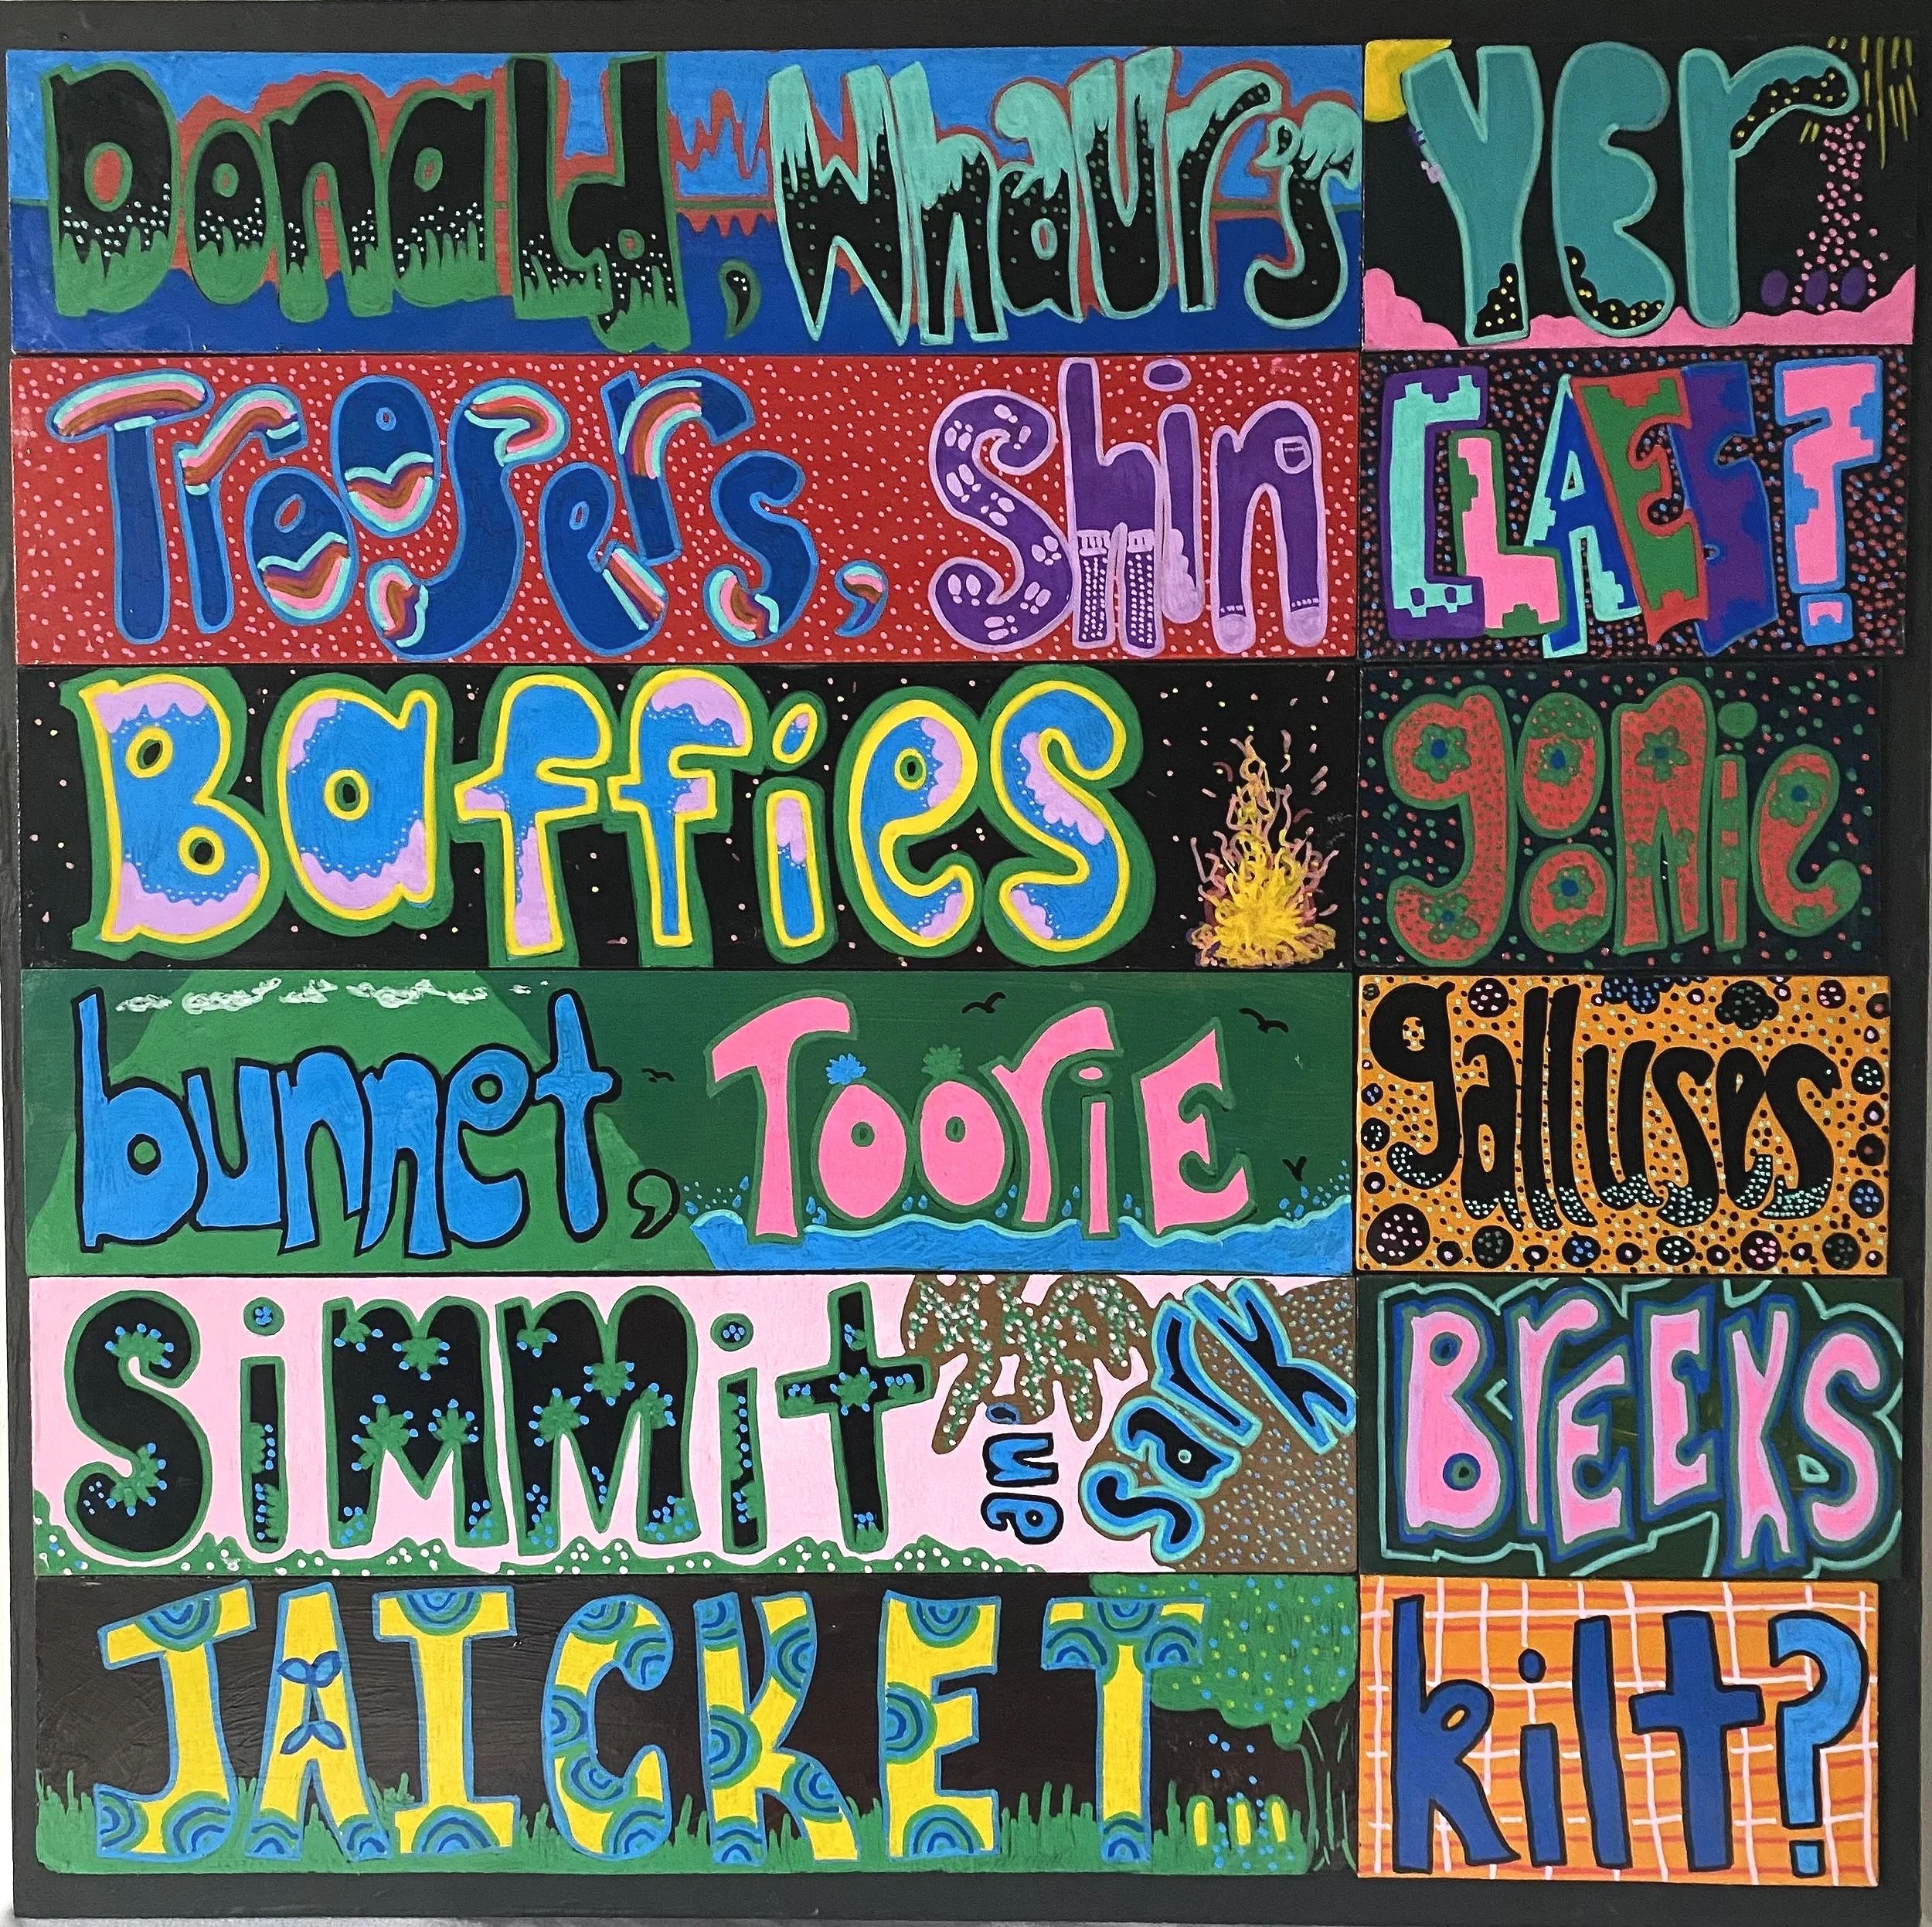 Donald, Whaur's YEr
Troosers, Shin CLAES?
Baffies goonie
bunnet, TOOriE galluses
SiMMit an' sark BrEEKS
JAICKET... kilt?